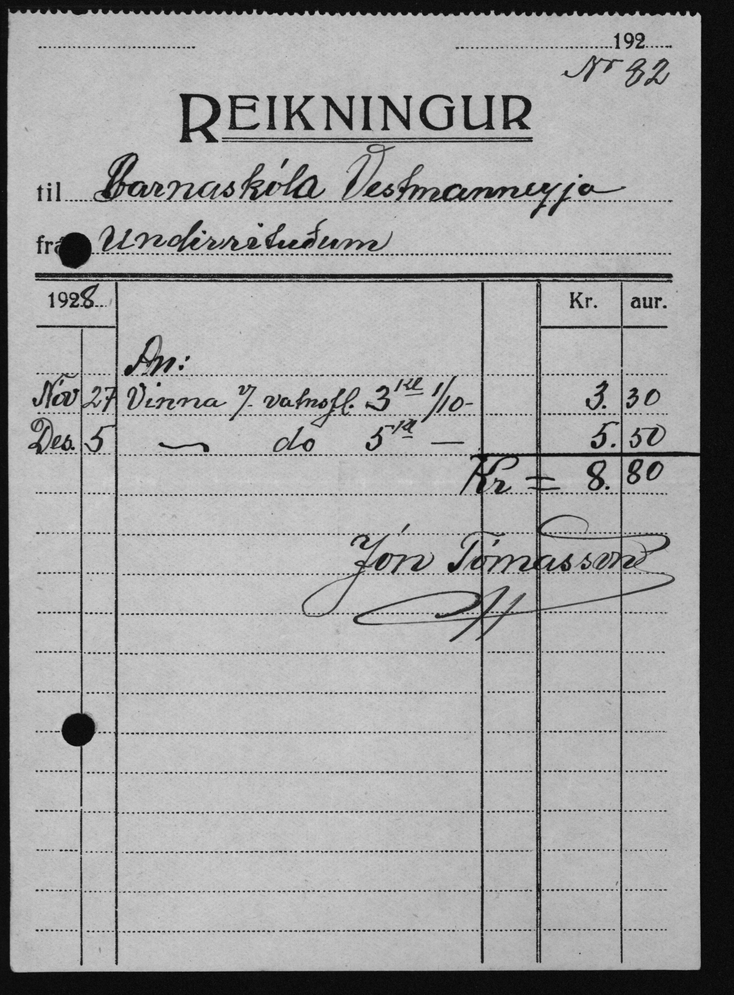 192
Nr 82
REIKNINGUR
til Barnaskóla Vestmanneyja
frá Undirrituðum
1928 Kr. aur.
An:
Nóv 27 Vinna v/. vatnsfl. 3 kl 1/10 - 3. 30
Des. 5 — do 5 kl — 5. 50
Kr = 8. 80
Jón Tómasson